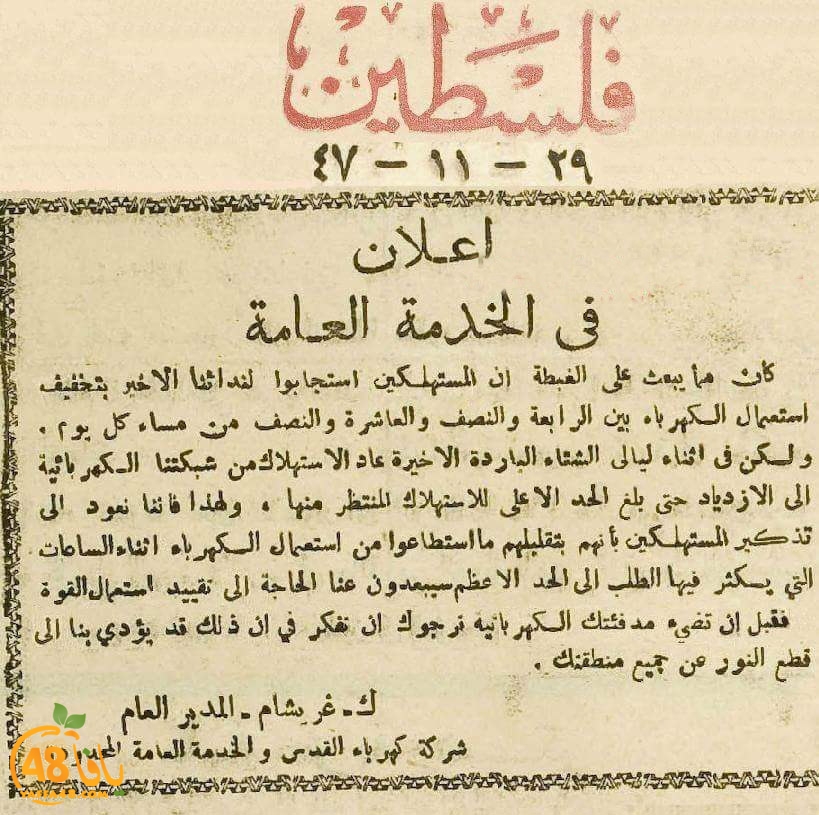 فلسطين
٢٩ - ١١ - ٤٧
اعلان
في الخدمة العامة
كان مما يبعث على الغبطة ان المستهلكين استجابوا لندائنا الاخير بتخفيف
استعمال الكهرباء بين الرابعة والنصف والعاشرة والنصف من مساء كل يوم .
ولكن في اثناء ليالي الشتاء الباردة الاخيرة عاد الاستهلاك من شبكتنا الكهربائية
الى الازدياد حتى بلغ الحد الاعلى للاستهلاك المنتظر منها . ولهذا فاننا نعود الى
تذكير المستهلكين بأنهم بتقليلهم ما استطاعوا من استعمال الكهرباء اثناء الساعات
التي يكثر فيها الطلب الى الحد الاعظم سيبعدون عنا الحاجة الى تقييد استعمال القوة
فقبل ان تضيء مدفئتك الكهربائية نرجوك ان تفكر في ان ذلك قد يؤدي بنا الى
قطع النور عن جميع منطقتك .
ك - غريشام - المدير العام
شركة كهرباء القدس والخدمة العامة المحدودة
يافا 48